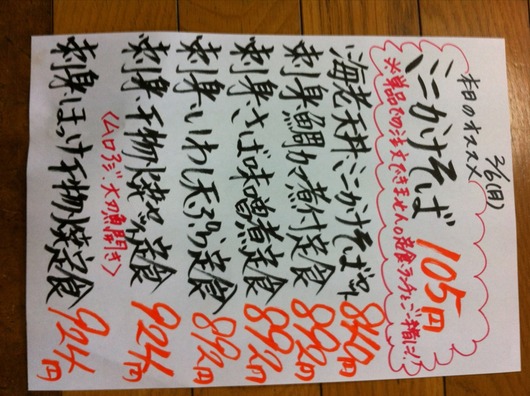 2/6(日)
本日のオススメ
ミニかけそば 105円
※単品での注文できません。定食、ランチとご一緒に!!
海老天丼、ミニかけそばセット 840円
刺身、鯛カマ煮付定食 892円
刺身、さば味噌煮定食 892円
刺身、いわし天ぷら定食 892円
刺身、干物焼セット定食 924円
〈ムロアジ、太刀魚開き〉
刺身、ほっけ干物焼定食 924円